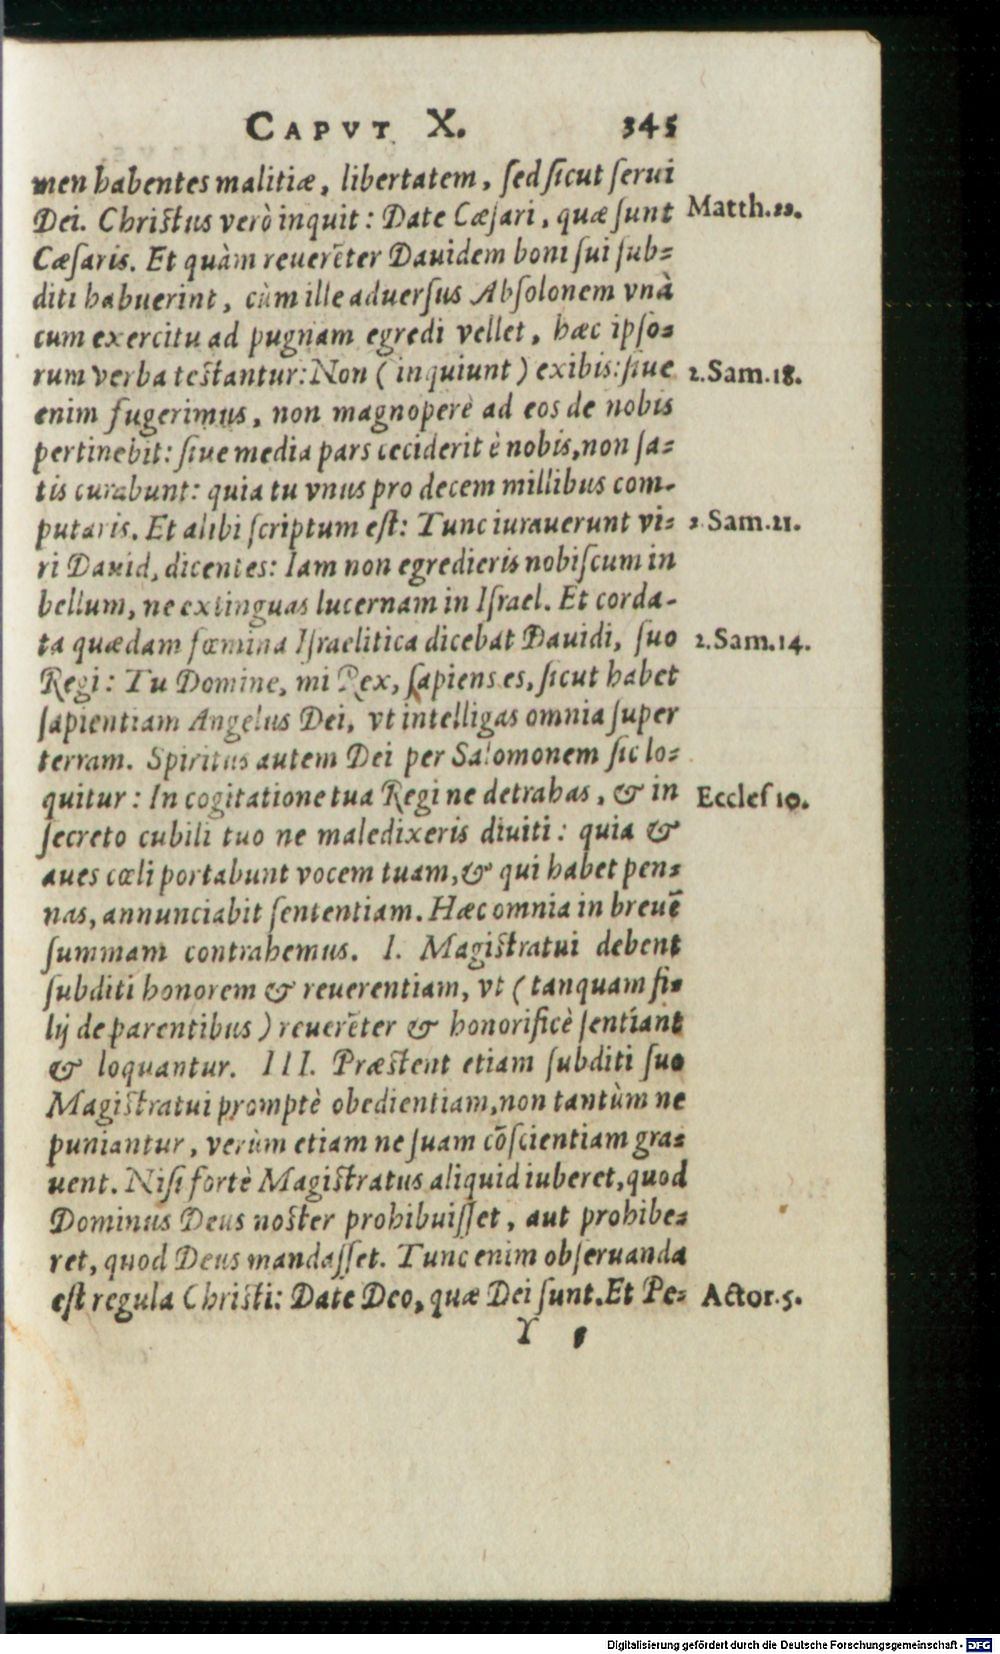 CAPVT X. 345
men habentes malitiæ, libertatem, ſed ſicut ſerui
Dei. Chriſtus verò inquit: Date Cæſari, quæ ſunt Matth.22.
Cæſaris. Et quàm reuerẽter Dauidem boni ſui ſub=
diti habuerint, cùm ille aduerſus Abſolonem vnà
cum exercitu ad pugnam egredi vellet, hæc ipſo=
rum verba teſtantur: Non (inquiunt) exibis: ſiue 2.Sam.18.
enim fugerimus, non magnoperè ad eos de nobis
pertinebit: ſiue media pars ceciderit è nobis, non ſa=
tis curabunt: quia tu vnus pro decem millibus com-
putaris. Et alibi ſcriptum eſt: Tunc iurauerunt vi= 2.Sam.21.
ri Dauid, dicentes: Iam non egredieris nobiſcum in
bellum, ne extinguas lucernam in Iſrael. Et corda-
ta quædam fœmina Iſraelitica dicebat Dauidi, ſuo 2.Sam.14.
Regi: Tu Domine, mi Rex, ſapiens es, ſicut habet
ſapientiam Angelus Dei, vt intelligas omnia ſuper
terram. Spiritus autem Dei per Salomonem ſic lo=
quitur: In cogitatione tua Regi ne detrahas, & in Eccleſ 10.
ſecreto cubili tuo ne maledixeris diuiti: quia &
aues cœli portabunt vocem tuam, & qui habet pen=
nas, annunciabit ſententiam. Hæc omnia in breuẽ
ſummam contrahemus. I. Magiſtratui debent
ſubditi honorem & reuerentiam, vt (tanquam fi=
lij de parentibus) reuerẽter & honorificè ſentiant
& loquantur. III. Præſtent etiam ſubditi ſuo
Magiſtratui promptè obedientiam, non tantùm ne
puniantur, verùm etiam ne ſuam cõſcientiam gra=
uent. Niſi fortè Magiſtratus aliquid iuberet, quod
Dominus Deus noſter prohibuiſſet, aut prohibe=
ret, quod Deus mandaſſet. Tunc enim obſeruanda
eſt regula Chriſti: Date Deo, quæ Dei ſunt. Et Pe= Actor.5.
Y
Digitalisierung gefördert durch die Deutsche Forschungsgemeinschaft - DFG